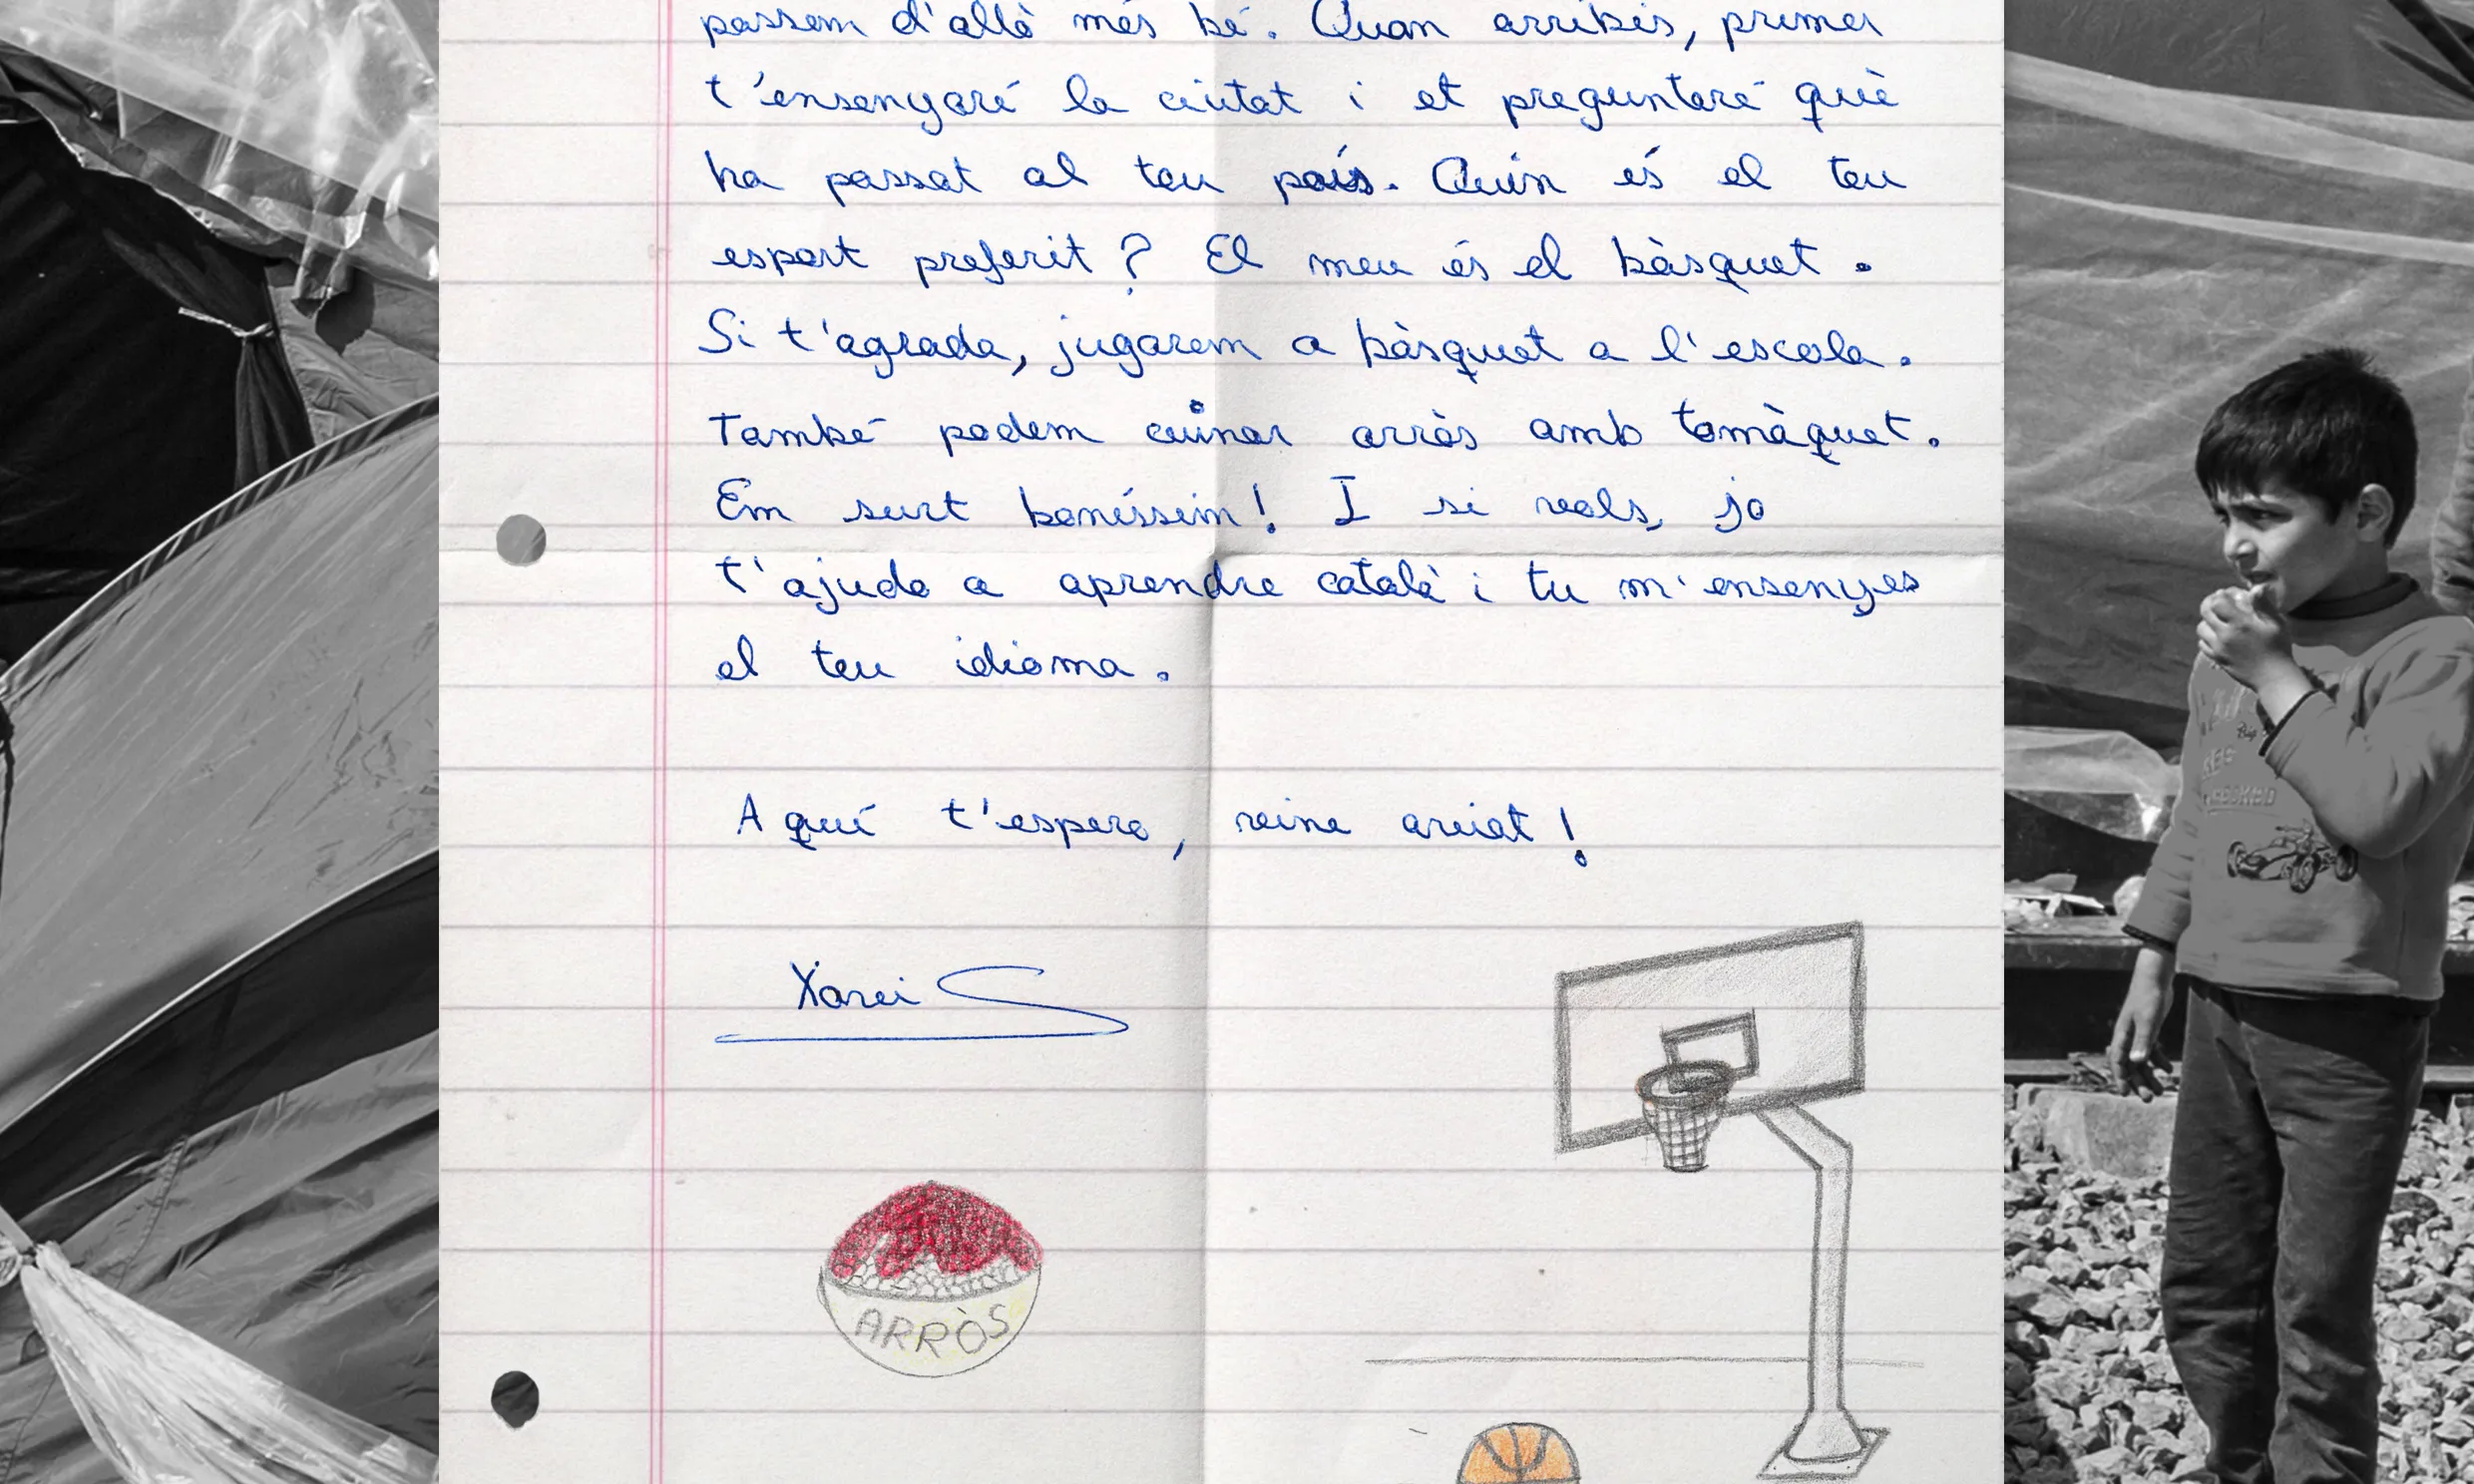 passem d'allò més bé. Quan arribis, primer
t'ensenyaré la ciutat i et preguntaré què
ha passat al teu país. Quin és el teu
esport preferit? El meu és el bàsquet.
Si t'agrada, jugarem a bàsquet a l'escola.
També podem cuinar arròs amb tomàquet.
Em surt boníssim! I si vols, jo
t'ajudo a aprendre català i tu m'ensenyes
el teu idioma.
Aquí t'espero, vine aviat!
Xavi
ARRÒS